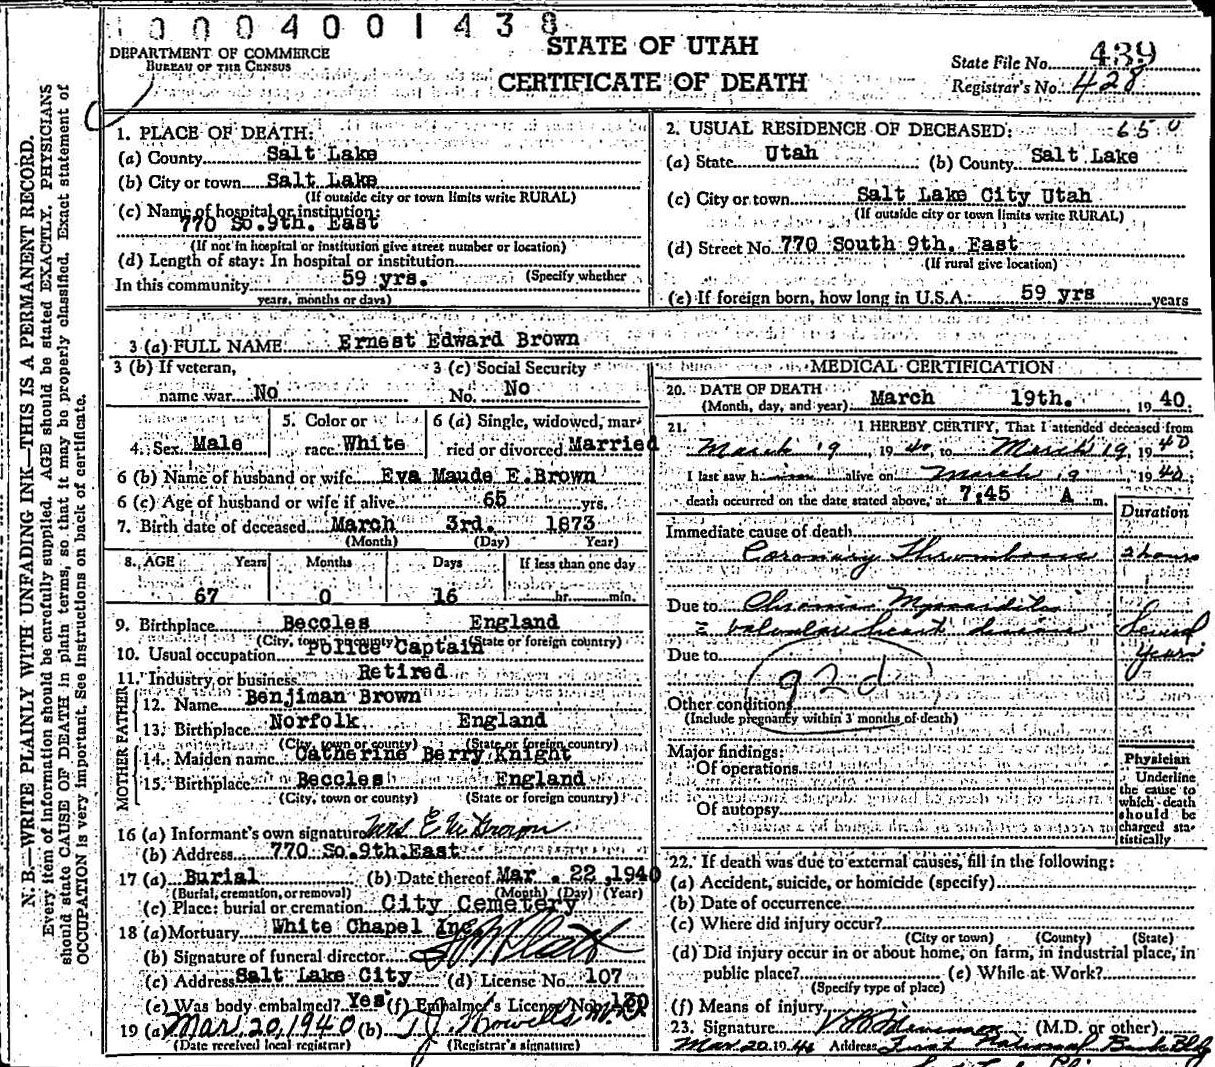 0004001438
DEPARTMENT OF COMMERCE
BUREAU OF THE CENSUS
STATE OF UTAH
CERTIFICATE OF DEATH
State File No. 439
Registrar's No. 428
N. B.—WRITE PLAINLY WITH UNFADING INK—THIS IS A PERMANENT RECORD.
Every item of information should be carefully supplied. AGE should be stated EXACTLY. PHYSICIANS
should state CAUSE OF DEATH in plain terms, so that it may be properly classified. Exact statement of
OCCUPATION is very important. See instructions on back of certificate.
1. PLACE OF DEATH:
(a) County Salt Lake
(b) City or town Salt Lake
(If outside city or town limits write RURAL)
(c) Name of hospital or institution:
770 So.9th. East
(If not in hospital or institution give street number or location)
(d) Length of stay: In hospital or institution
(Specify whether
In this community 59 yrs.
years, months or days)
2. USUAL RESIDENCE OF DECEASED: 650
(a) State Utah (b) County Salt Lake
(c) City or town Salt Lake City Utah
(If outside city or town limits write RURAL)
(d) Street No. 770 South 9th. East
(If rural give location)
(e) If foreign born, how long in U.S.A.: 59 yrs years
3 (a) FULL NAME Ernest Edward Brown
3 (b) If veteran,
name war No
3 (c) Social Security
No. No
4. Sex Male
5. Color or
race White
6 (a) Single, widowed, mar-
ried or divorced Married
6 (b) Name of husband or wife Eva Maude E.Brown
6 (c) Age of husband or wife if alive 65 yrs.
7. Birth date of deceased March 3rd. 1873
(Month) (Day) Year)
8. AGE Years Months Days If less than one day
67 0 16 hr. min.
9. Birthplace Beccles England
(City, town or county) (State or foreign country)
10. Usual occupation Police Captain
11. Industry or business Retired
FATHER
12. Name Benjiman Brown
13. Birthplace Norfolk England
(City, town or county) (State or foreign country)
MOTHER
14. Maiden name Catherine Berry Knight
15. Birthplace Beccles England
(City, town or county) (State or foreign country)
16 (a) Informant's own signature Mrs E M Brown
(b) Address 770 So.9th.East
17 (a) Burial (b) Date thereof Mar . 22 ,1940
(Burial, cremation, or removal) (Month) (Day) (Year)
(c) Place: burial or cremation City Cemetery
18 (a) Mortuary White Chapel Inc.
(b) Signature of funeral director
(c) Address Salt Lake City (d) License No. 107
(e) Was body embalmed? Yes (f) Embalmer's License No. 130
19 (a) Mar. 20, 1940 (b) T J Howells M.D.
(Date received local registrar) (Registrar's signature)
MEDICAL CERTIFICATION
20. DATE OF DEATH
(Month, day, and year): March 19th. 1940.
21. I HEREBY CERTIFY, That I attended deceased from
March 19, 1940, to March 19, 1940
I last saw him alive on March 19 1940;
death occurred on the date stated above, at 7:45 A m.
Duration
Immediate cause of death
Coronary Thrombosis 2 hours
Due to Chronic Myocarditis
valvular heart disease Several
Due to years
92d
Other conditions
(Include pregnancy within 3 months of death)
Major findings:
Of operations
Of autopsy
Physician
Underline
the cause to
which death
should be
charged sta-
tistically
22. If death was due to external causes, fill in the following:
(a) Accident, suicide, or homicide (specify)
(b) Date of occurrence
(c) Where did injury occur?
(City or town) (County) (State)
(d) Did injury occur in or about home, on farm, in industrial place, in
public place? (e) While at Work?
(Specify type of place)
(f) Means of injury
23. Signature (M.D. or other)
Mar. 20 1940 Address First National Bank Bldg